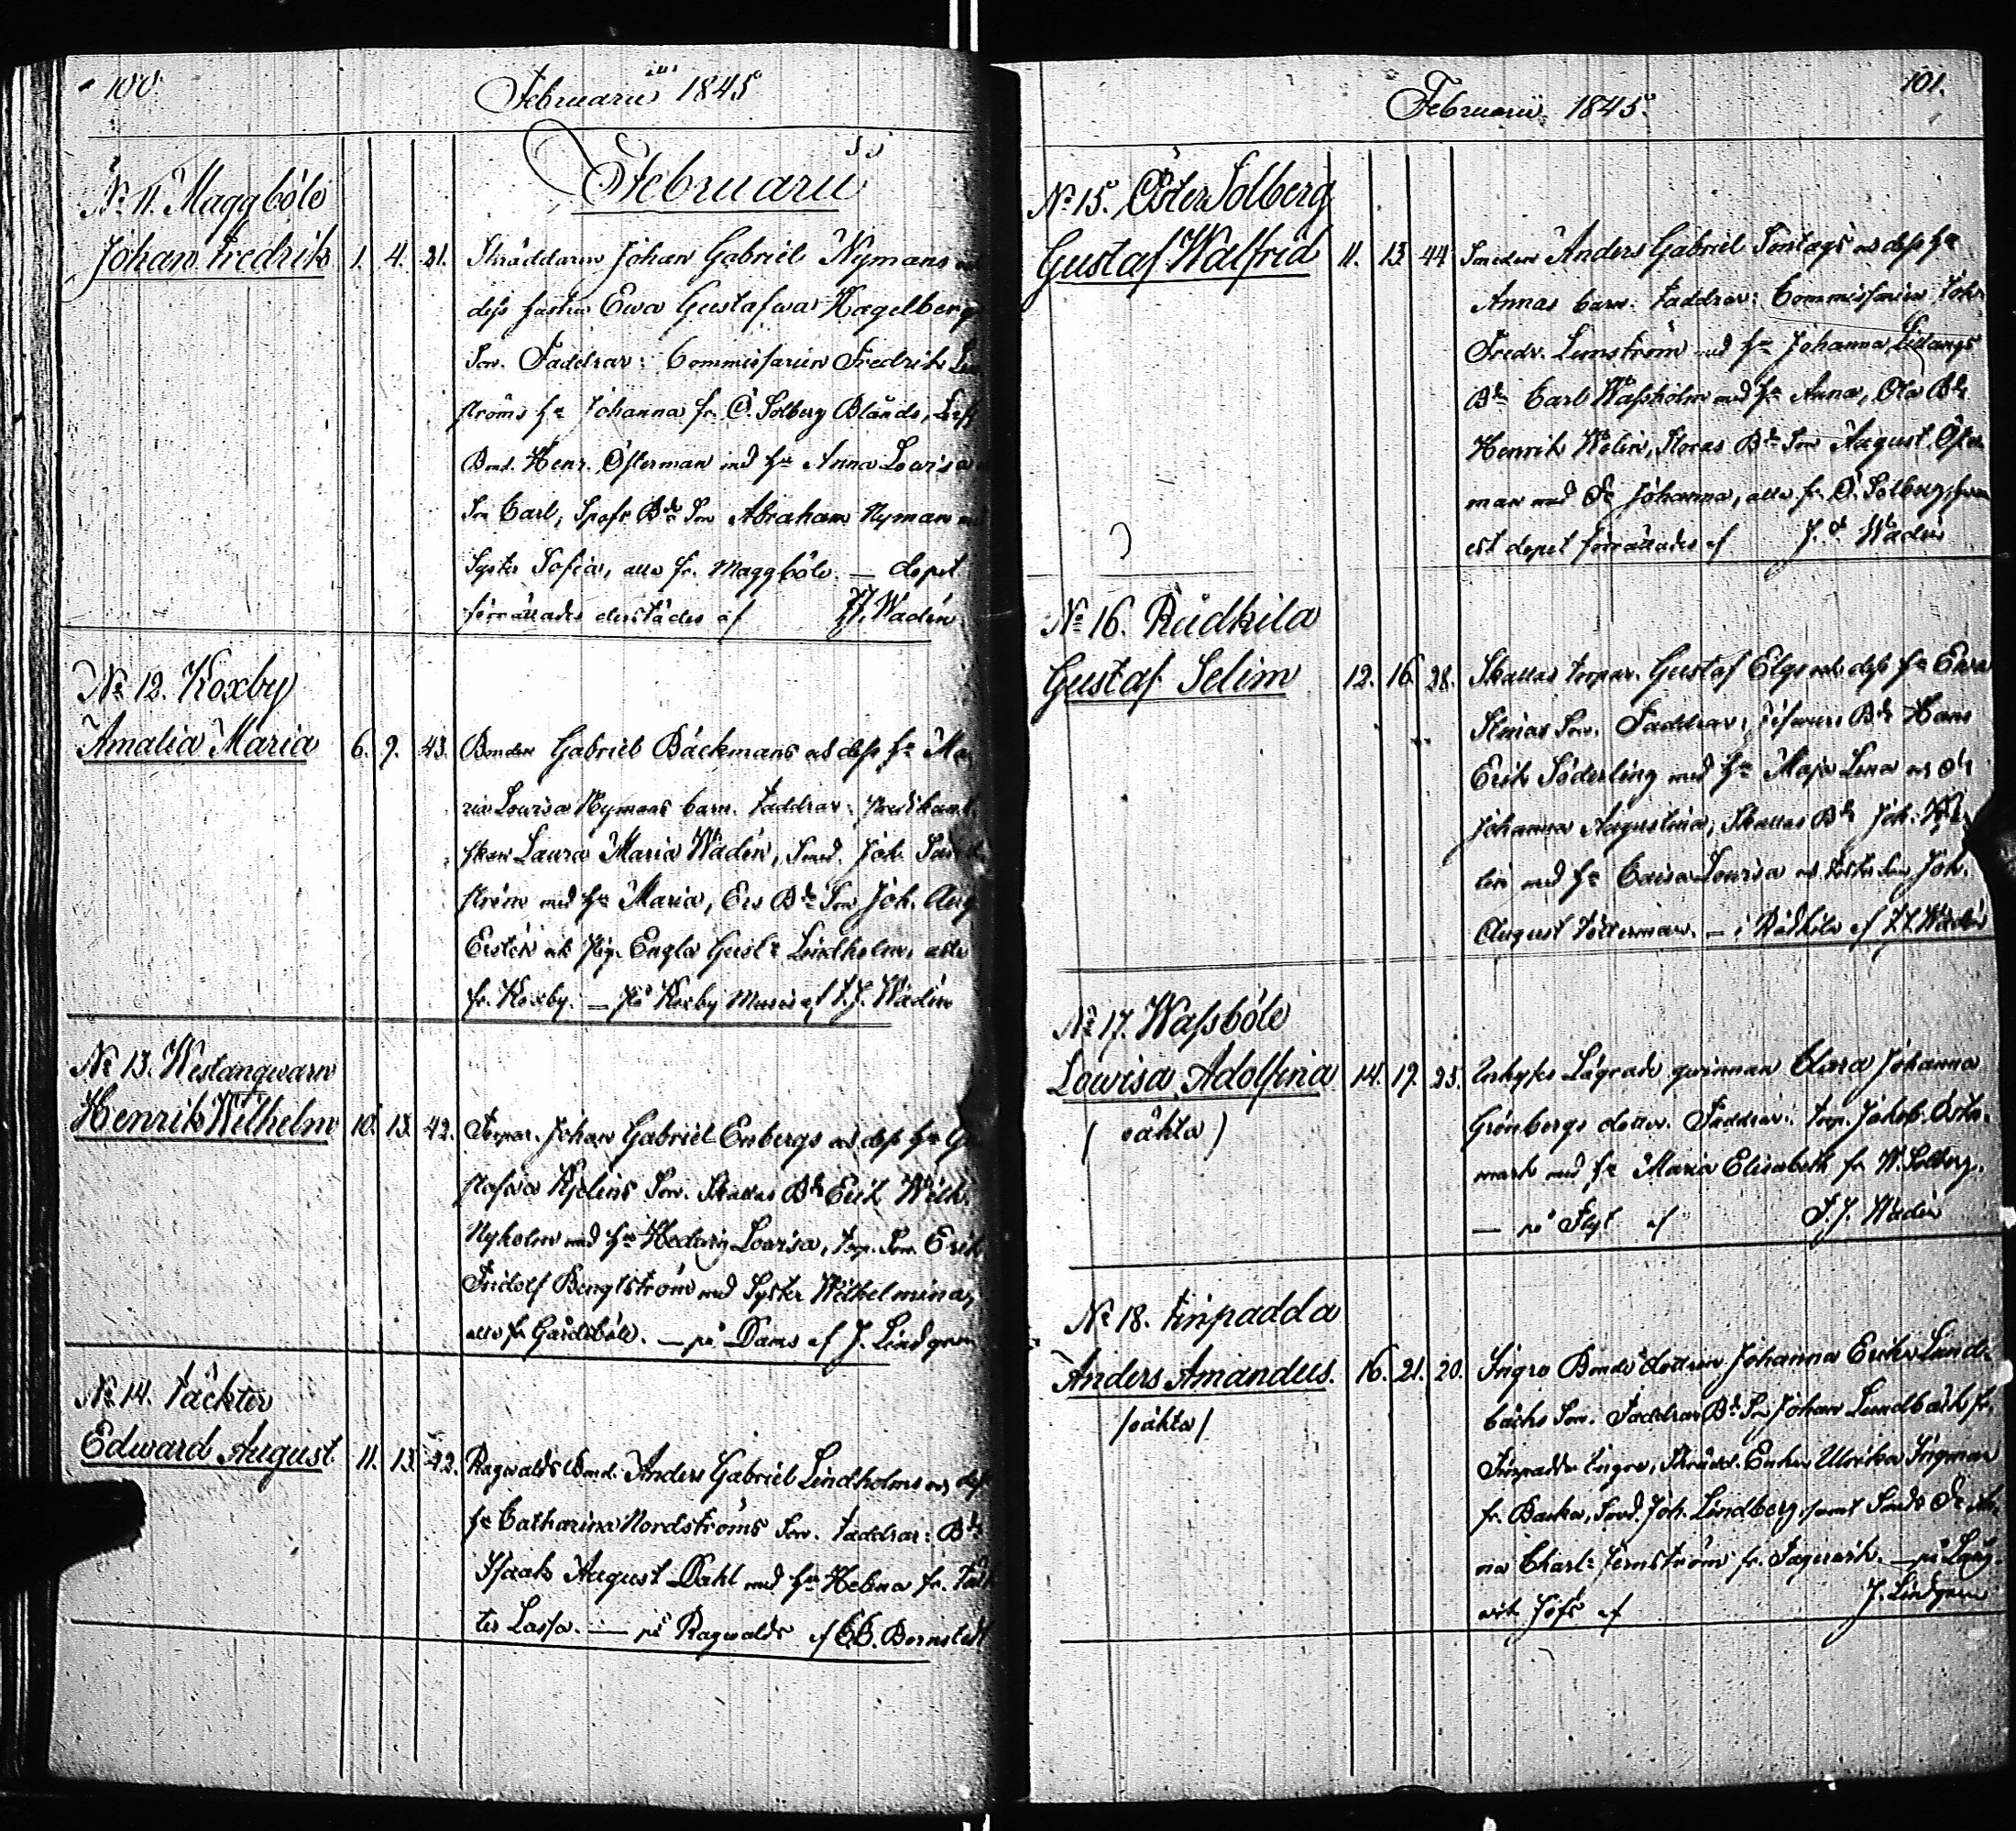 100
Februarii 1845
Februarii
No 11. Maggböle
Johan Fredrik 1. 4. 21. Skräddaren Johan Gabriel Nymans
dess hustru Ewa Gustafwa Hagelberg
Son. Faddrar: Commissarien Fredrik
ströms hu Johanna fr. Ö. Solberg Blånds,
Bond. Henr. Österman med hu Anna Lowisa
Son Carl, Bde Son Abraham Nyman
Syster Sofia, alla fr. Maggböle. — dopet
förrättades derstädes af Wadén
No 12. Koxby
Amalia Maria 6. 9. 43. Bonden Gabriel Bäckmans och dess hu Ma
ria Lowisa Nymans barn. Faddrar:
skan Laura Maria Wadén, Smed. Joh.
ström med hu Maria, Ers Bde Son Joh. Aug
och Pig. Engla Gust. Lindholm, alla
fr. Koxby. — På Koxby af F. J. Wadén
No 13. Westanqwarn
Henrik Wilhelm 10. 13. 42. Torpar. Johan Gabriel Enbergs och dess hu
stafwa Kjelins Son. Skallas Bde Erik Wilh.
Nyholm med hu Hedwig Lowisa, torp. Son Erik
Fridolf Bengtström med Syster Wilhelmina,
alla fr. Gårdsböle. — på Dams af J. Lindgren
No 14. Täckter
Edward August 11. 13. 42. Ragwalds Bond. Anders Gabriel Lindholms och dess
hu Catharina Nordströms Son. Faddrar: Bde
Isaak August Dahl med hu Helena fr. Täck
ter Lassa. — på Ragwalds af Bornstedt
101.
Februarii 1845.
No 15. Öster Solberg
Gustaf Walfrid 11. 13. 44 Smeden Anders Gabriel Sontags och dess hu
Annas barn. Faddrar: Commissarien Joh.
Fredr. Lunström med hu Johanna,
Bde Carl Wassholm med hu Anna, Ola Bde
Henrik Welin, Storas Bde Son August Öster
man med Johanna, alla fr. Ö. Solberg,
est dopet förrättades af Wadén
No 16. Rådkila
Gustaf Selim 12. 16. 28. Skallas torpar. Gustaf Elgs och dess hu Ewa
Stinas Son. Faddrar: Bde Hans
Erik Söderling med hu Maja Lena och
Johanna Augustina, Skallas Bde Joh.
lin med hu Caisa Lowisa och Joh.
August Tötterman. — i Rådkila af F. J. Wadén
No 17. Wassböle
Lowisa Adolfina 14. 19. 25. Lägrade qwinnan Clara Johanna
(oäkta) Grönbergs dotter. Faddrar: torp. Jakob
mark med hu Maria Elisabeth fr. W. Solberg.
— på Flyt af F. J. Wadén
No 18. Finpadda
Anders Amandus. 16. 21. 20. Ingro Bonde dottern Johanna Erika Lund
/oäkta/ bäcks Son. Faddrar Bde Son Johan Lundbäck fr.
Finpadda Ingro, Skrädd. Enkan Ulrika Ingman
fr. Backa, Smed. Joh. Lindberg samt
na Charl. Jernström fr. Fagerwik. — på Fager
wik af J. Lindgren